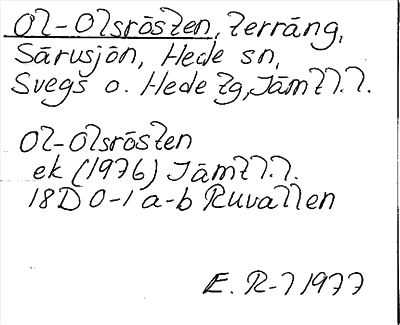 Ol-Olsrösten, terräng,
Särusjön, Hede sn,
Svegs o. Hede tg, Jämtl.l.
Ol-Olsrösten
ek (1976) Jämtl.l.
18D 0-1 a-b Ruvallen
E. R-l 1977